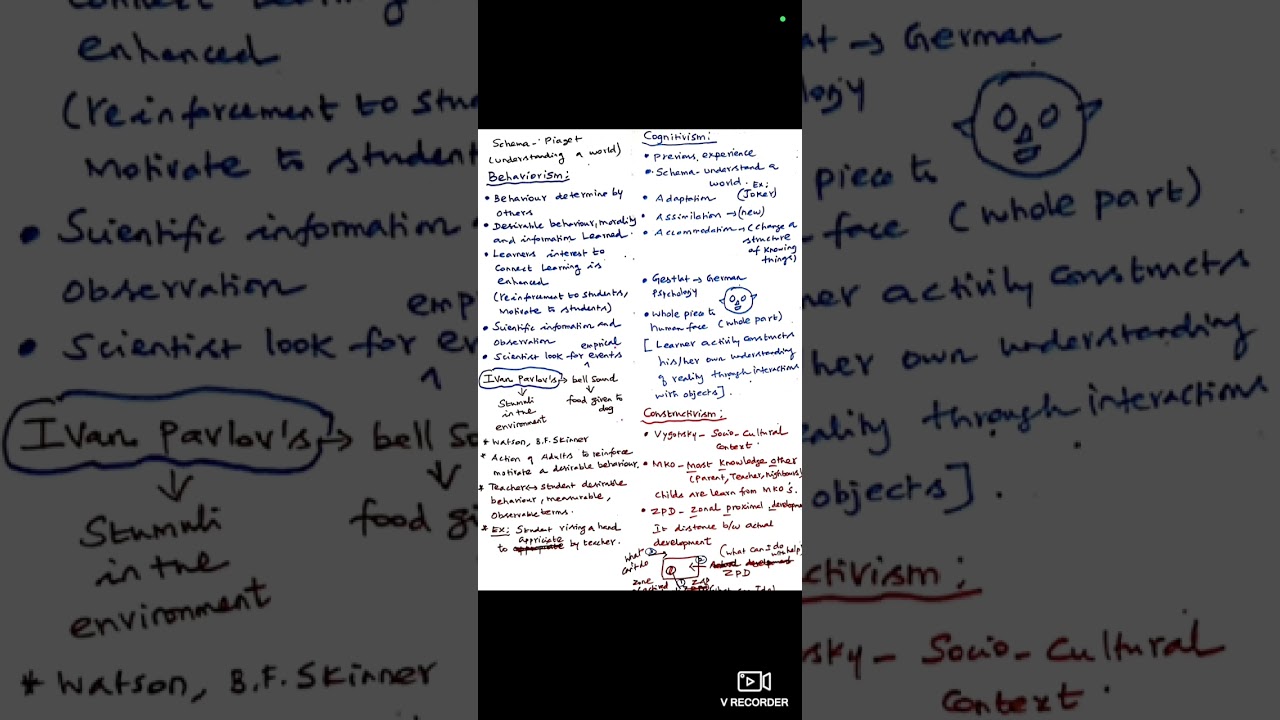 Schema - Piaget
(understanding a world)
Behaviorism:
• Behaviour determine by
others
• Desirable behaviour, morality
and information Learned.
• Learners interest to
Connect Learning is
enhanced
(reinforcement to students,
Motivate to students)
• Scientific information and
observation
emprical
• Scientist look for events
^
Ivan Pavlov's → bell sound
Stumuli
in the
environment
food given to
dog
* Watson, B.F. Skinner
* Action of Adults to reinforce
motivate a desirable behaviour.
* Teacher ↔ student desirable
behaviour, measurable,
observable terms.
* Ex: Student rising a hand
appriciate
to by teacher.
Cognitivism:
• Previous experience
• Schema - understand a
world. Ex:
• Adaptation (Joker)
• Assimilation → (new)
• Accommodation → (change a
structure
of knowing
things)
• Gestlat → German
Psychology
• Whole piece to
human face (whole part)
[Learner activity constructs
his/her own understanding
of reality through interactions
with objects].
Constructivism:
• Vygotsky - Socio-cultural
context.
• MKO - Most knowledge other
(Parent, Teacher, Nighbours)
Childs are learn from MKO's.
• ZPD - Zonal proximal developmen
It distence b/w actual
development
what
(what can I do
with help)
ZPD
zone
V RECORDER
enhanced
(reinforcement to stud
Motivate to student
• Scientific information
observation
emp
• Scientist look for ev
^
Ivan Pavlov's → bell so
Stumuli
in the
environment
food gi
* Watson, B.F. Skinner
at → German
logy
piece to
face (whole part)
ner activity constructs
her own understanding
eality through interactions
objects].
ctivism:
sky - Socio-cultural
context.